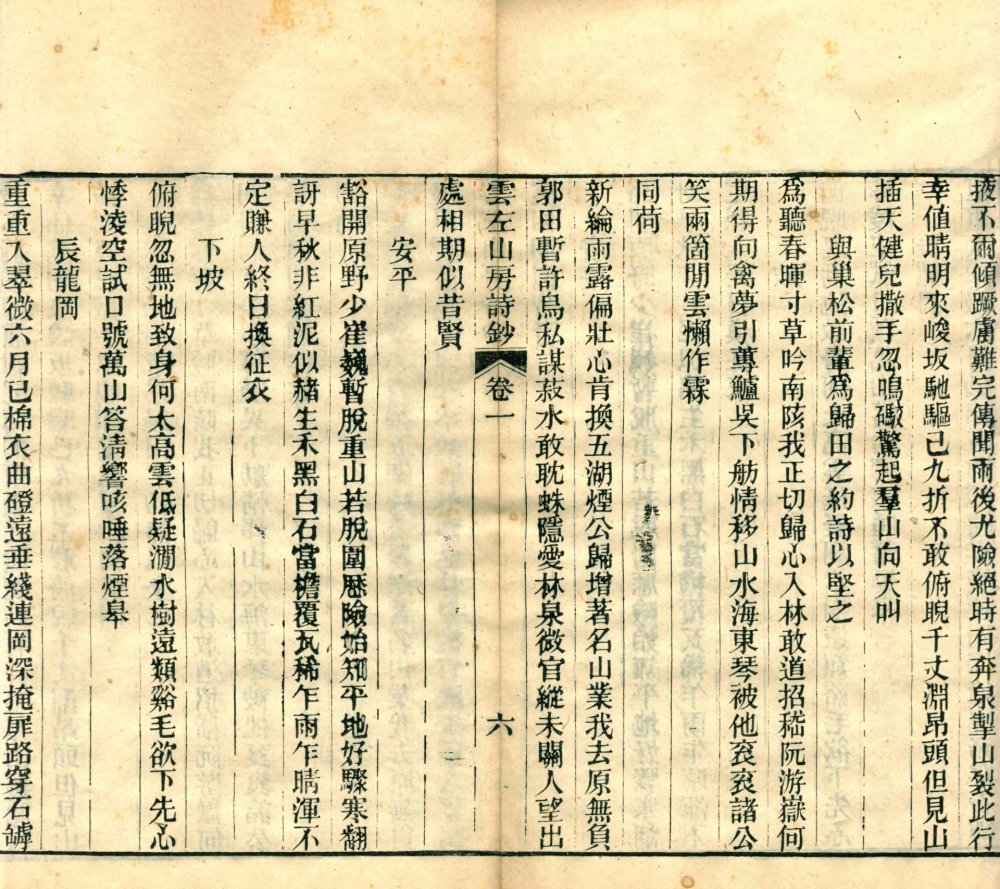 掖不爾傾蹶膚難完傳聞雨後尤險絕時有奔泉掣山裂此行
幸值晴明來峻坂馳驅已九折不敢俯睨千丈淵昂頭但見山
插天健兒撒手忽鳴礮驚起羣山向天叫
與巢松前輩為歸田之約詩以堅之
為聽春暉寸草吟南陔我正切歸心入林敢道招嵇阮游嶽何
期得向禽夢引蓴鱸吳下舫情移山水海東琴被他袞袞諸公
笑兩箇閒雲懶作霖
同荷
新綸雨露偏壯心肯換五湖煙公歸增著名山業我去原無負
郭田暫許烏私謀菽水敢耽蛛隱愛林泉微官縱未關人望出
雲左山房詩鈔 卷一 六
處相期似昔賢
安平
豁開原野少崔巍暫脫重山若脫圍歷險始知平地好驟寒翻
訝早秋非紅泥似赭生禾黑白石當檐覆瓦稀乍雨乍晴渾不
定賺人終日換征衣
下坡
俯睨忽無地致身何太高雲低疑澗水樹遠類谿毛欲下先心
悸淩空試口號萬山答清響咳唾落煙皋
辰龍岡
重重入翠微六月已棉衣曲磴遠垂綫連岡深掩扉路穿石罅